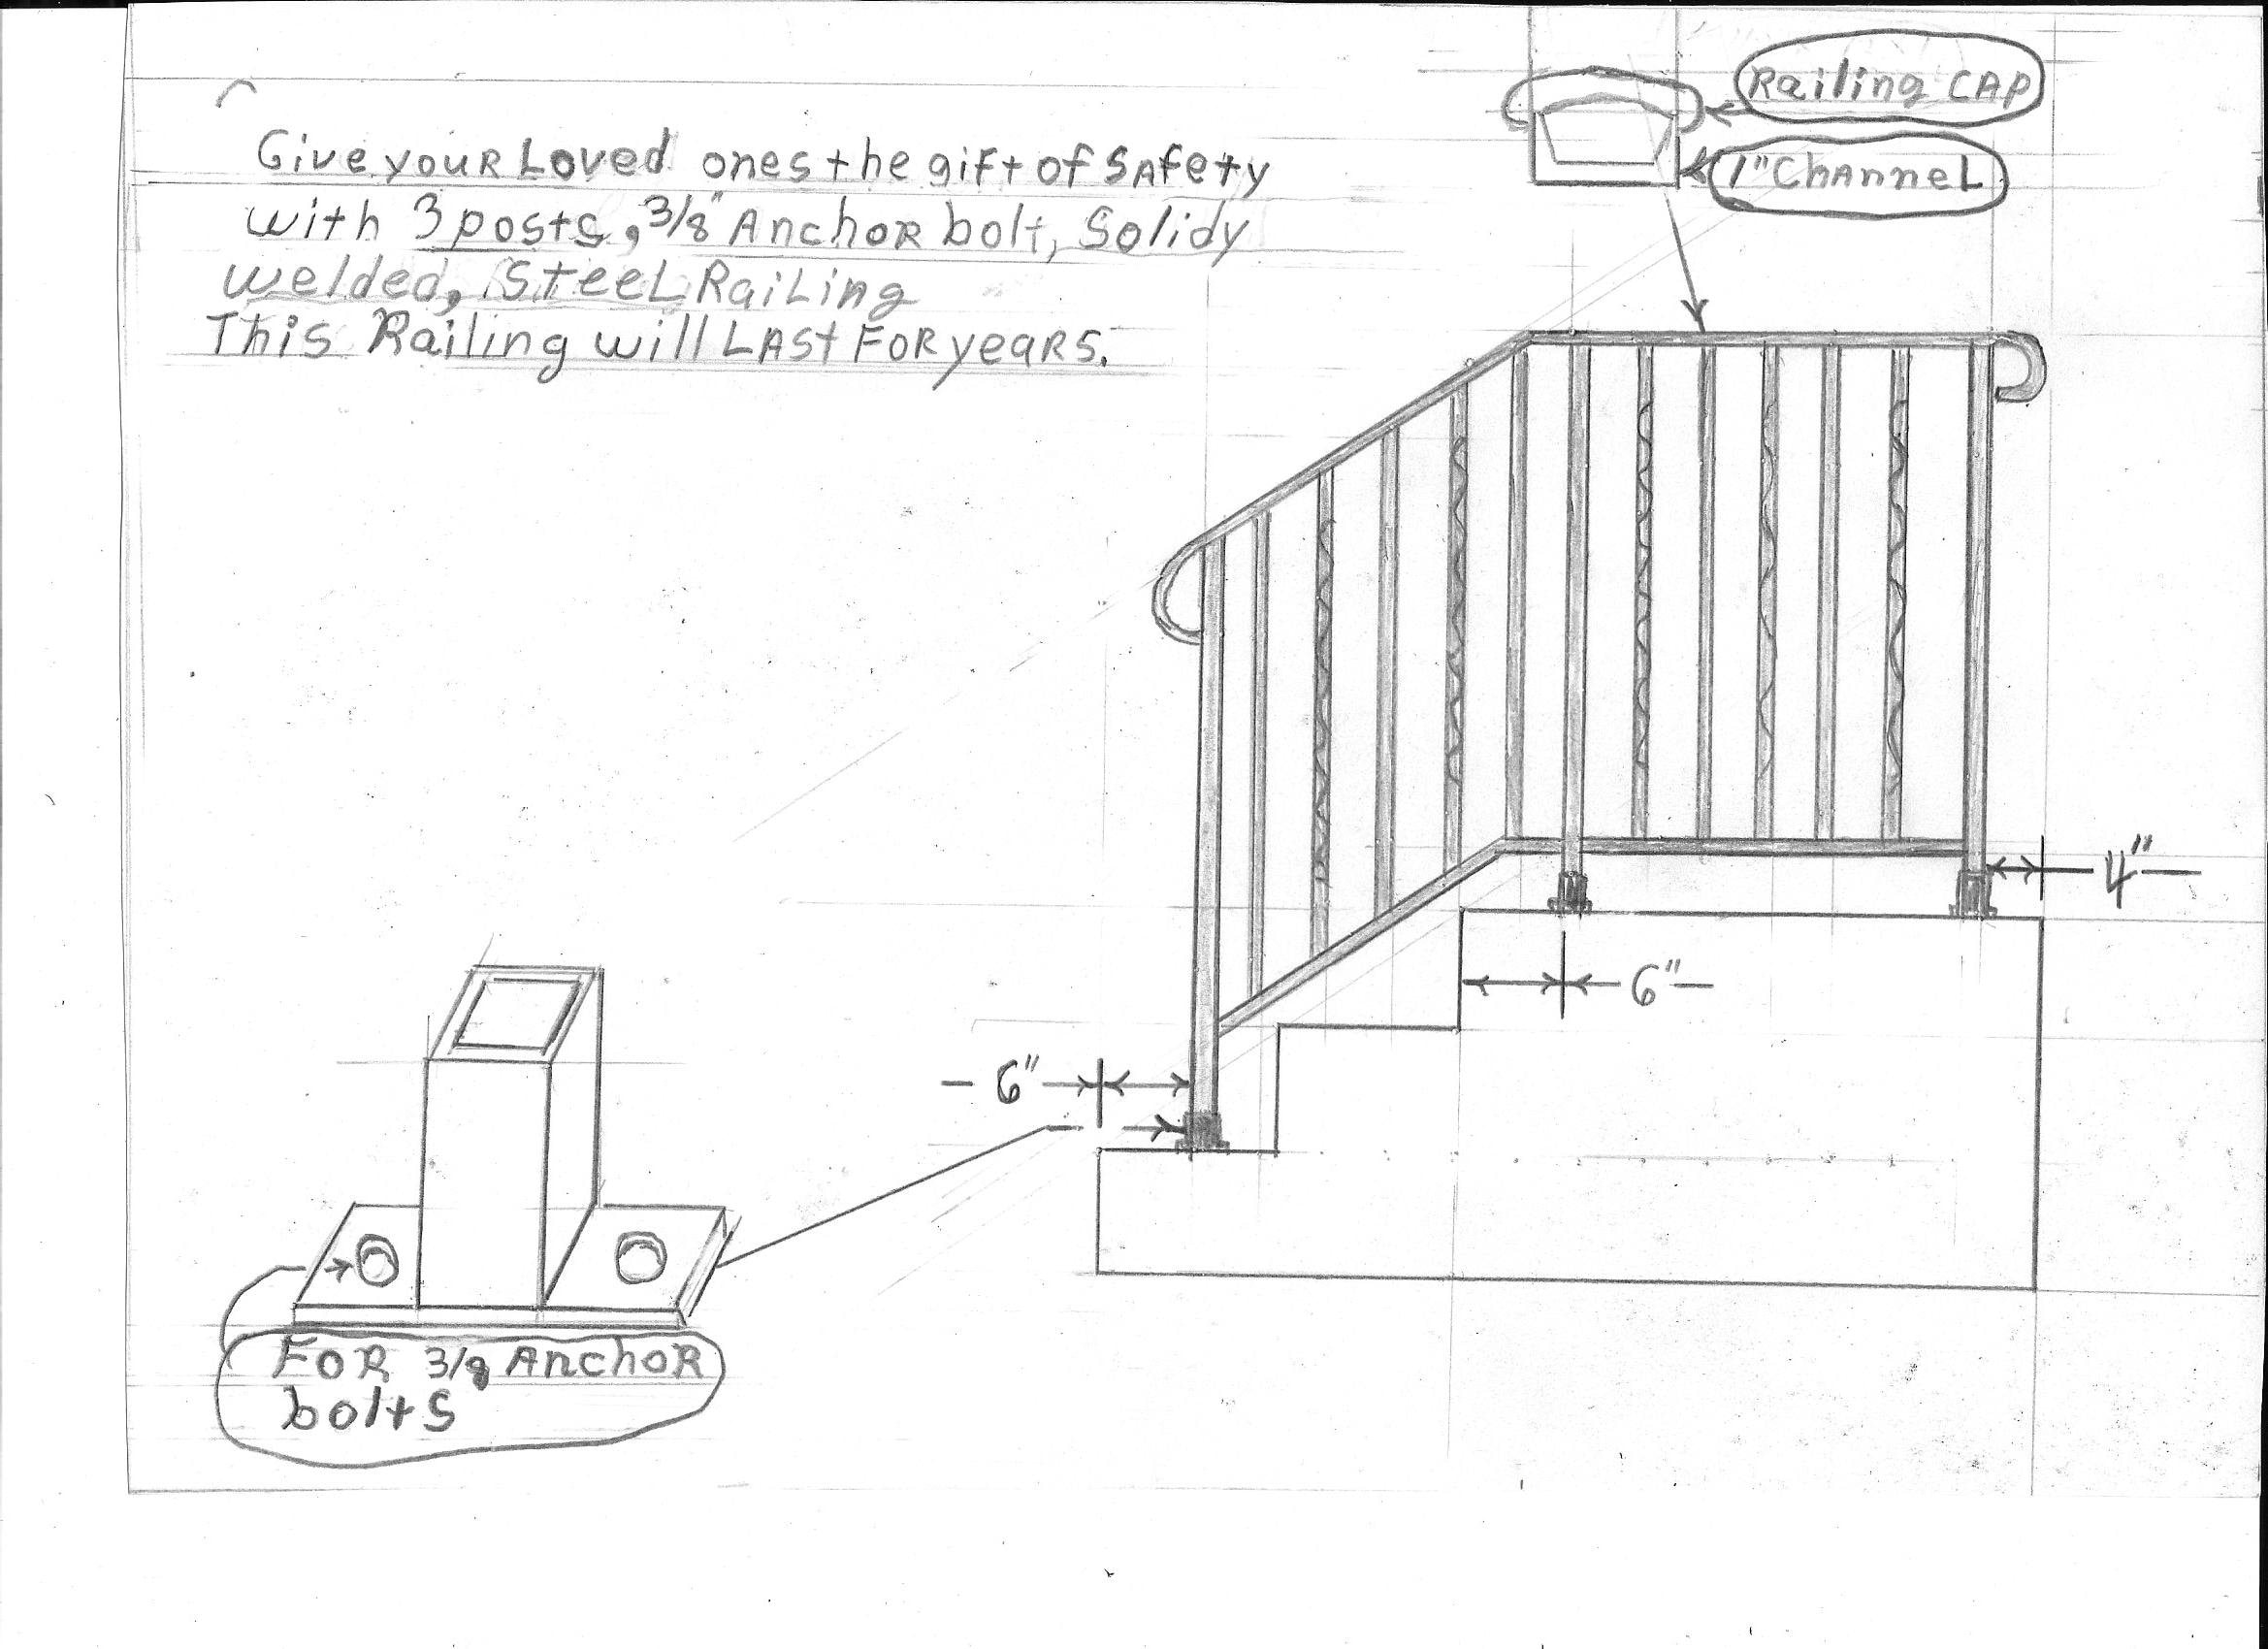 Give your Loved ones the gift of Safety
with 3 posts, 3/8" Anchor bolt, Solidy
welded, Steel Railing
This Railing will Last For years.
Railing CAP
1" Channel
4"
6"
6"
For 3/8 Anchor
bolts